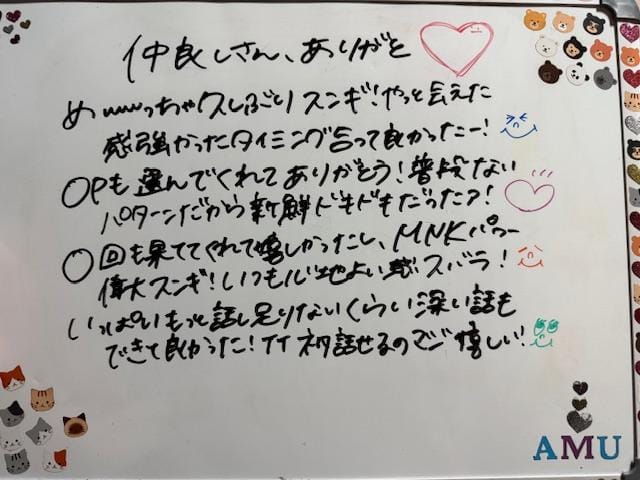 仲良しさん、ありがと
めwwwっちゃ久しぶりスンギ!やっと会えた
感強かったタイミング合って良かったー!
OPも選んでくれてありがとう!普段ない
パターンだから新鮮ドキドキだったァ!
○回も果ててくれて嬉しかったし、MNKパワー
偉大スンギ!いつも心地よい感スバラ!
いっぱいもっと話し足りないくらい深い話も
できて良かった!イイネタ話せるのマジ嬉しい!
AMU